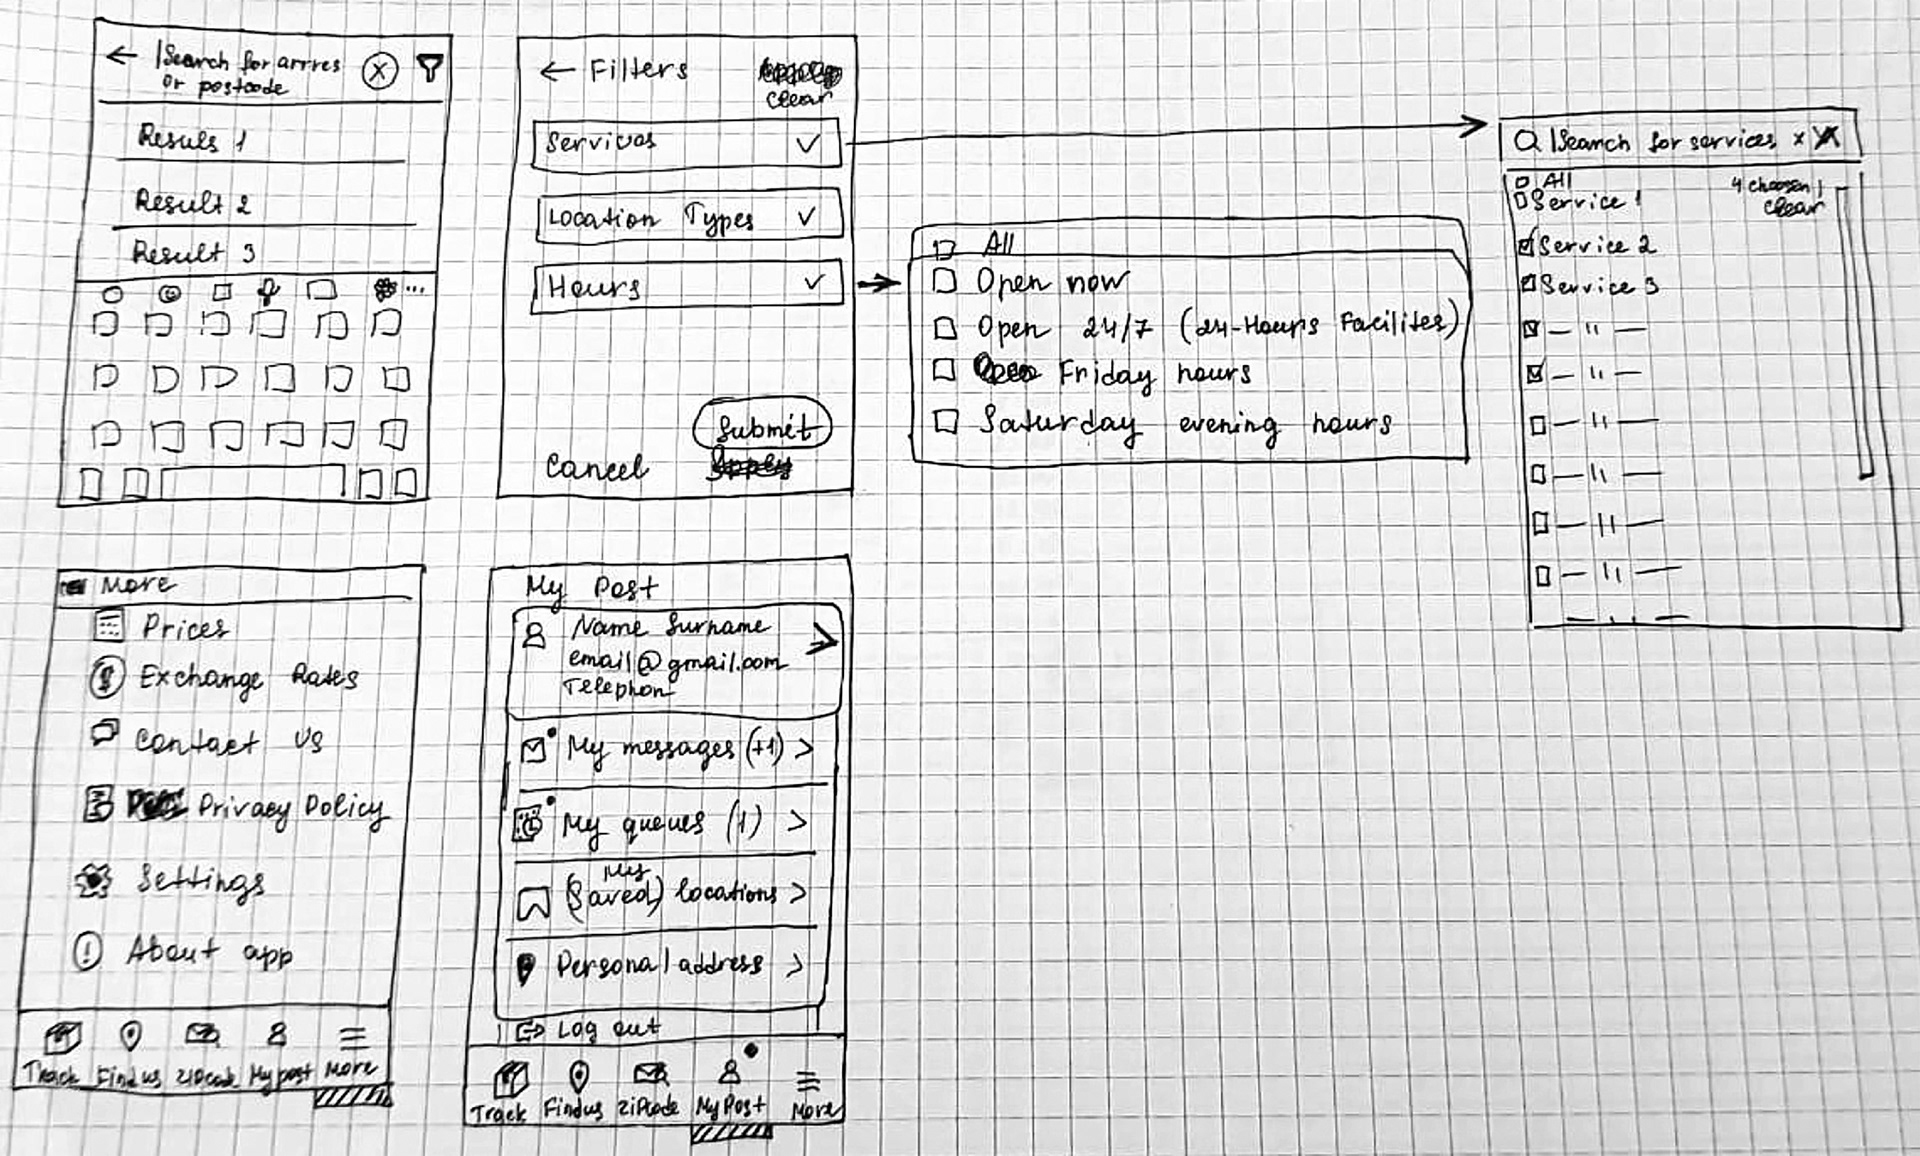 Search for arrres
or postcode
Resuls 1
Result 2
Result 3
Filters
clear
Services
Location Types
Hours
Submit
Cancel
All
Open now
Open 24/7 (24-Hours Facilites)
Friday hours
Saturday evening hours
Search for services x
All
4 choosen
Service 1
clear
Service 2
Service 3
— 11 —
— 11 —
— 11 —
— 11 —
— 11 —
— 11 —
More
Prices
$ Exchange Rates
Contact Us
Privacy Policy
Settings
! About app
Track Find us ZIPcode My post More
My Post
Name Surname
email@gmail.com
Telephon
My messages (+1) >
My queues (1) >
My
(Saved) locations >
Personal address >
Log out
Track Find us ZIPcode My Post More